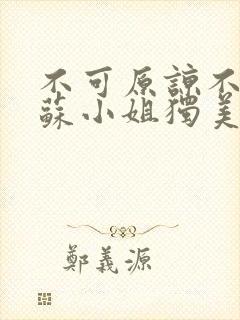 不可原諒不
蘇小姐獨美
鄭義源